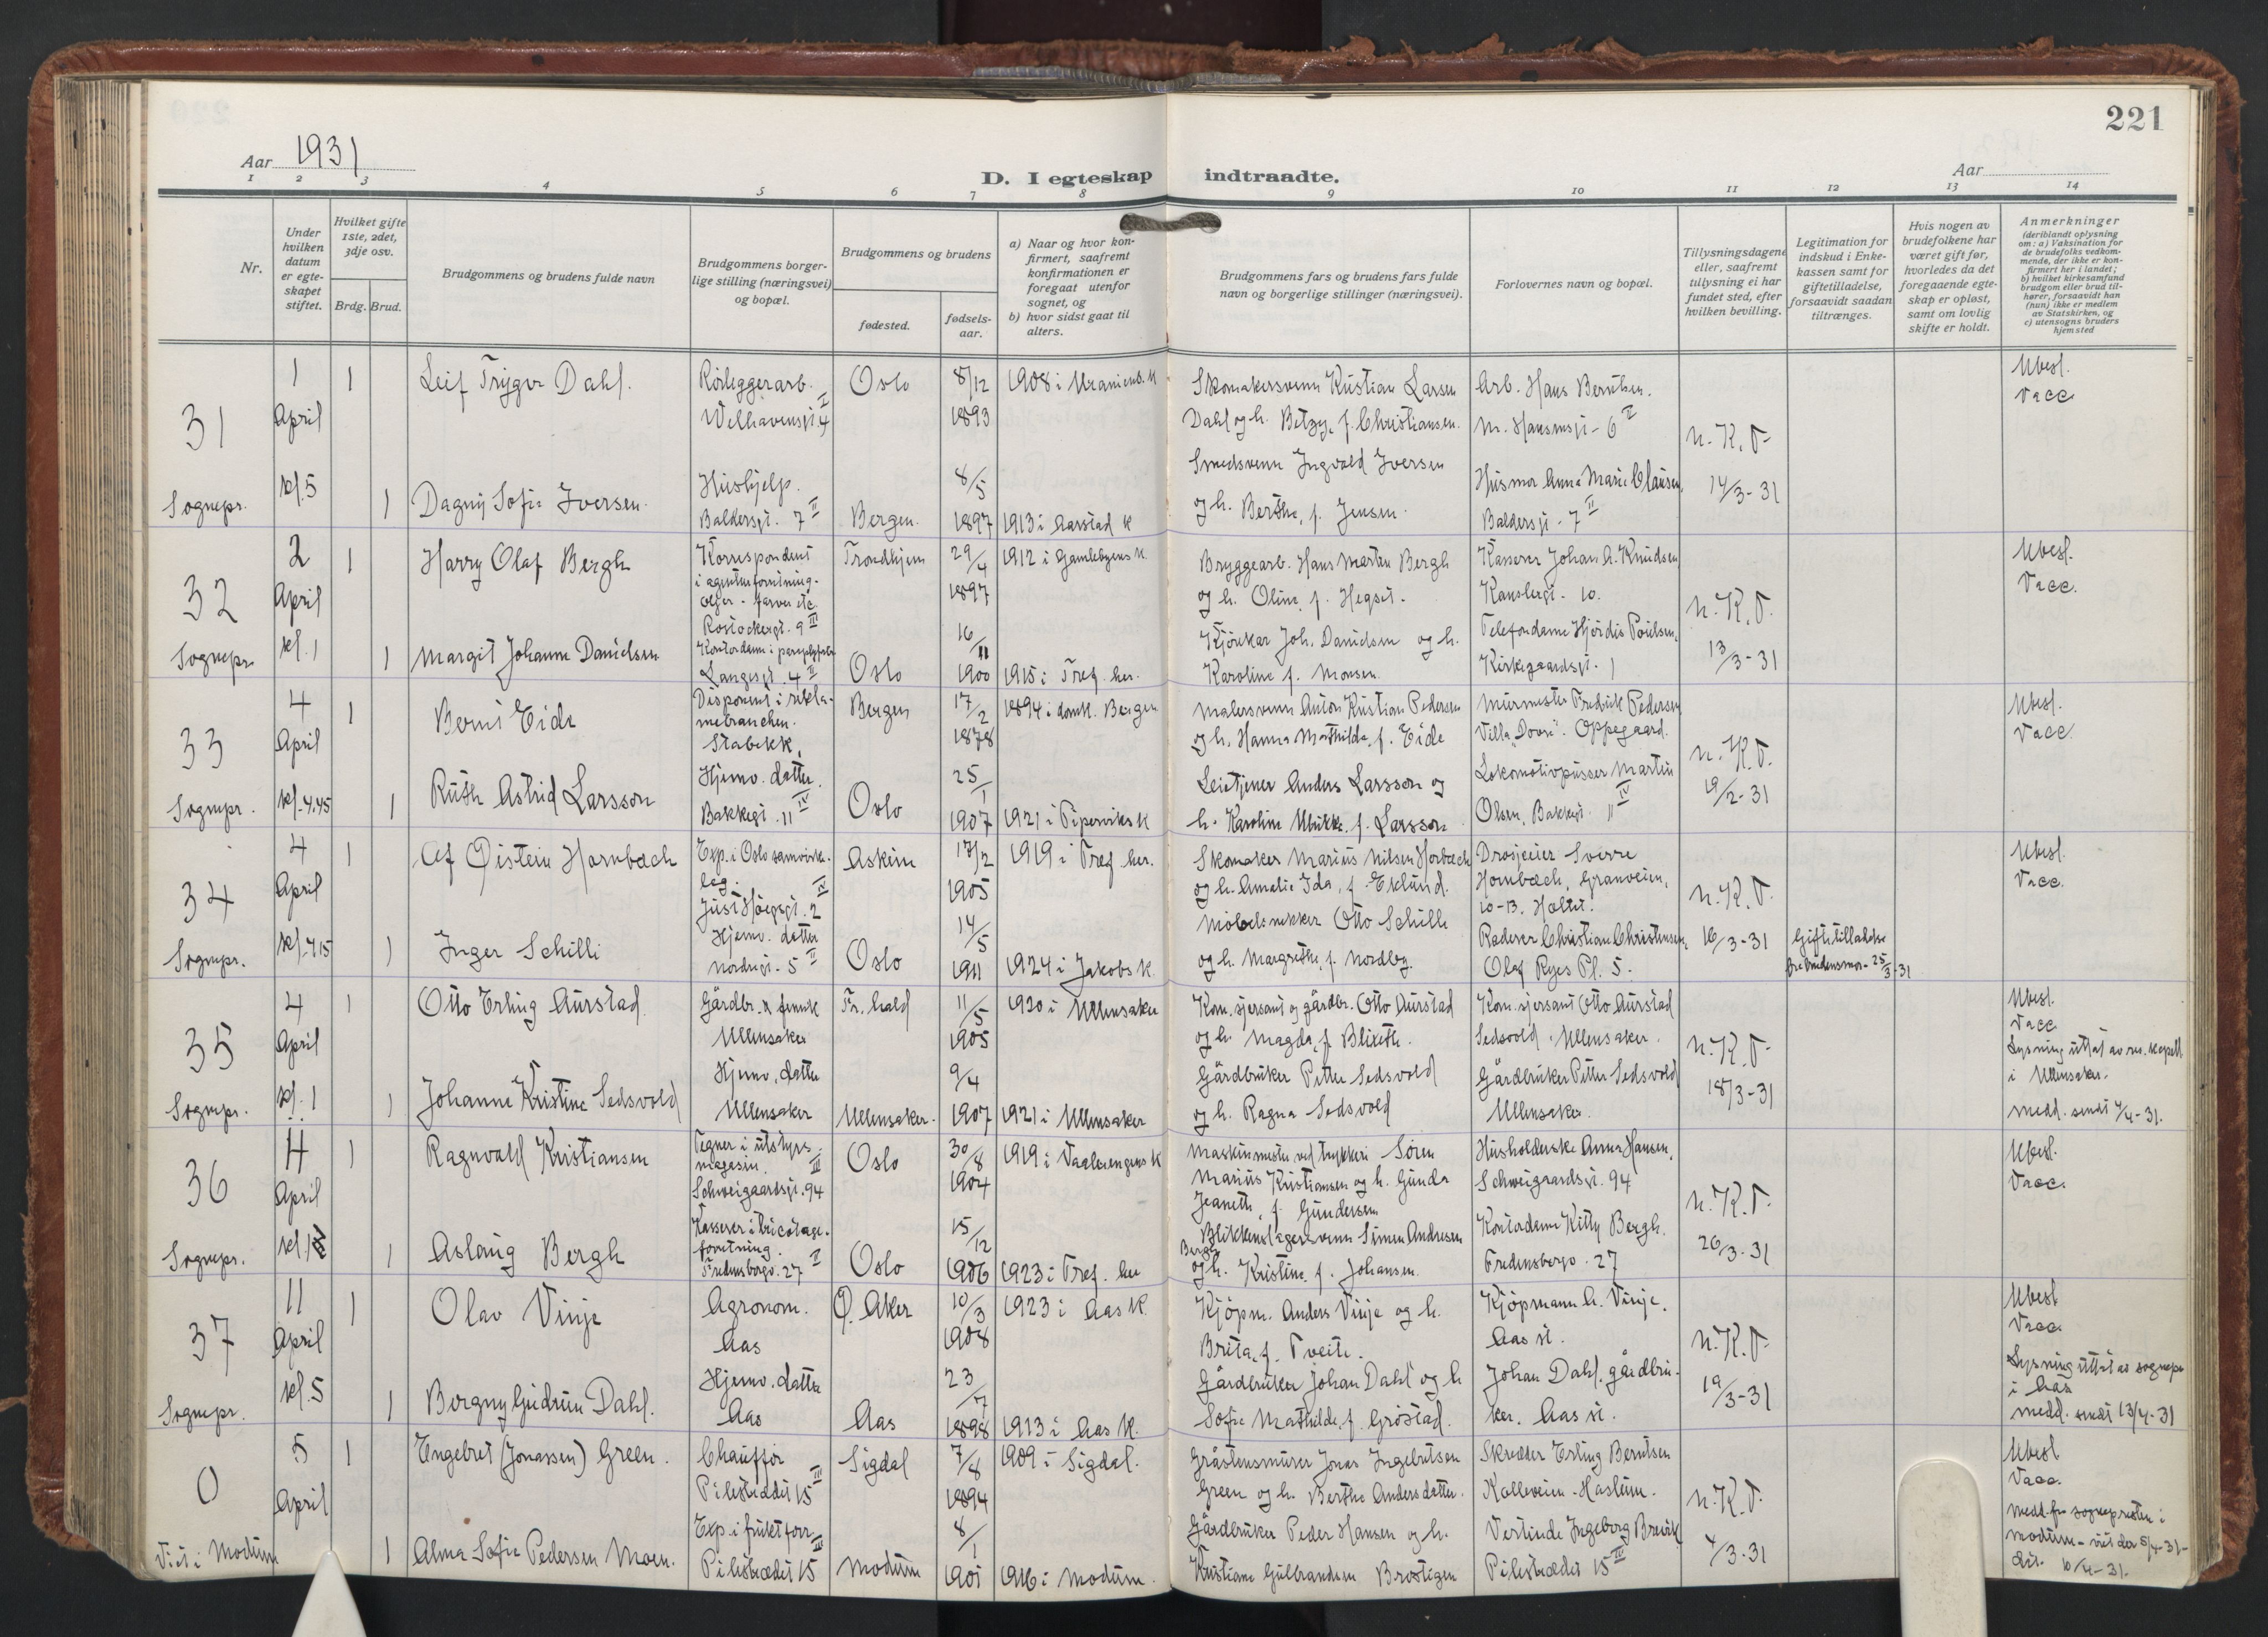 221
Aar 1931
Aar
D. I egteskap indtraadte.
1 2 3 4 5 6 7 8 9 10 11 12 13 14
Nr.
Under hvilken datum er egteskapet stiftet.
Hvilket gifte 1ste, 2det, 3dje osv.
Brdg. Brud.
Brudgommens og brudens fulde navn
Brudgommens borgerlige stilling (næringsvei) og bopæl.
Brudgommens og brudens
fødested.
fødselsaar.
a) Naar og hvor konfirmert, saafremt konfirmationen er foregaat utenfor sognet, og
b) hvor sidst gaat til alters.
Brudgommens fars og brudens fars fulde navn og borgerlige stillinger (næringsvei).
Forlovernes navn og bopæl.
Tillysningsdagene eller, saafremt tillysning ei har fundet sted, efter hvilken bevilling.
Legitimation for indskud i Enkekassen samt for giftetilladelse, forsaavidt saadan tiltrænges.
Hvis nogen av brudefolkene har været gift før, hvorledes da det foregaaende egteskap er opløst, samt om lovlig skifte er holdt.
Anmerkninger (deriblandt oplysning om: a) Vaksination for de brudefolks vedkommende, der ikke er konfirmert her i landet; b) hvilket kirkesamfund brudgom eller brud tilhører, forsaavidt han (hun) ikke er medlem av Statskirken, og c) utensogns bruders hjemsted
31 Sognepr.
1 April kl. 5
1 Leif Trygve Dahl. Rørleggerarb. Welhavensgt. 4 II Oslo 8/12 1893 1908 i Uranienb. K
Skomakersvenn Kristian Larsen Dahl og h. Betzy, f. Christiansen.
Arb. Hans Berntsen. M. Hausmsgt - 6 II
1 Dagny Sofie Iversen. Hushjelp. Baldersgt. 7 II Bergen. 8/5 1897 1913 i Aarstad K
Smedsvenn Ingvald Iversen og h. Berthe, f. Jensen.
Husmor Anna Marie Clausen, Baldersgt - 7 II
n. K. F. 14/3 - 31
Ubesl. Vacc
32 Sognepr.
2 April kl. 1
1 Harry Olaf Bergh Korrespondent i agenturforretning. oljer - farver etc. Rostockergt. 9 III Trondhjem 29/4 1897 1912 i Gamlebyens K.
Bryggearb. Hans Martin Bergh og h. Oline, f. Hegset.
Kasserer Johan A. Knudsen Kanslergt. 10.
1 Margit Johanne Danielsen Langesgt. 4 II Oslo 16/11 1900 1915 i Tref. her.
Kjørekar Joh. Danielsen og h. Karoline f. Monsen.
Telefondame Hjørdis Poulsen, Kirkegaardsgt. 1
n. K. F. 13/3 - 31
Ubesl. Vacc.
33 Sognepr.
4 April kl. 4.45
1 Berni Eide Disponent i reklamebranchen. Stabekk. Bergen 17/2 1878 1894 i domk. Bergen
Malersvenn Anton Kristian Pedersen og h. Hanna Mathilde, f. Eide
Murmester Fredrik Pedersen Villa "Dovre". Oppegaard.
1 Ruth Astrid Larsson Hjemv. datter. Bakkegt. 11 IV Oslo 25/1 1907 1921 i Piperviks K
Leietjener Anders Larsson og h. Karoline Ulrikke, f. Larsson
Lokomotivpusser Martin Olsen, Bakkegt. 11 IV
n. K. F. 19/2 - 31
Ubesl. Vacc.
34 Sognepr.
4 April kl. 4.15
1 Alf Øistein Hornbæch Exp. i Oslo samvirkelag. Just Høegsgt. 2 IV Askim 17/2 1905 1919 i Tref. her.
Skomaker Marius Nilsen Horbæch og h. Amalie Ida, f. Eklund.
Drosjeeier Sverre Hornbæch, Granveien, 10-B. Holtet.
1 Inger Schilli Hjemv. datter Nordregt. 5 II Oslo 14/5 1911 1924 i Jakobs K.
Møbelsnekker Otto Schille og h. Margrethe, f. Nordby.
Christian Christensen, Olaf Ryes Pl. 5.
n. K. F. 16/3 - 31
Giftetilladelse fra brudens mor - 25/3 - 31
Ubesl. Vacc.
35 Sognepr.
4 April kl. 1
1 Otto Erling Aurstad Gårdbr. & fenrik Ullensaker Fr. hald 11/5 1905 1920 i Ullensaker
Kom. sjersant og gårdbr. Otto Aurstad og h. Magda, f. Blixeth.
Kom. sjersant Otto Aurstad Sedsvold, Ullensaker.
1 Johanne Kristine Sedsvold Hjemv. datter Ullensaker Ullensaker. 9/4 1907 1921 i Ullensaker
Gårdbruker Petter Sedsvold og h. Ragna Sedsvold
Gårdbruker Petter Sedsvold Ullensaker.
n. K. F. 18/3 - 31
Ubesl. Vacc Lysning uttat av res. kapell. i Ullensaker. medd. sendt 7/4 - 31.
36 Sognepr.
4 April kl. 1
1 Ragnvald Kristiansen Tegner i utstyrsmagasin. Schweigaardsgt. 94 III Oslo 30/8 1904 1919 i Vaalerengens K
Maskinmester ved trykkeri Søren Marius Kristiansen og h. Gunda Jeanette, f. Gundersen
Husholderske Anna Hansen, Schweigaardsgt. 94
1 Aslaug Bergh Kasserer i tricotageforretning. Fredensborgv. 27 II Oslo 15/12 1906 1923 i Tref. her
Blikkenslagersvenn Simen Andresen Bergh og h. Kristine, f. Johansen.
Kontordame Kitty Bergh. Fredensborgv. 27
n. K. F. 26/3 - 31
Ubesl. Vacc.
37 Sognepr.
11 April kl. 5
1 Olav Vinje Agronom. Aas Ø. Aker 10/3 1908 1923 i Aas K.
Kjøpm. Anders Vinje og h. Brita, f. Tveite.
Kjøpmann A. Vinje. Aas st.
1 Bergny Gudrun Dahl. Hjemv. datter Aas Aas 23/7 1898 1913 i Aas K.
Gårdbruker Johan Dahl og h Sofie Mathilde, f. Grøstad.
Johan Dahl, gårdbruker. Aas st.
n. K. F. 19/3 - 31
Ubesl Vacc. Lysning uttat av sognepr i Aas medd. sendt 13/4 - 31
0 Viet i Modum
5 April
1 Engebret (Jonassen) Green. Chauffør Pilestrædet 15 III Sigdal 7/8 1894 1909 i Sigdal.
Gråstensmurer Jonas Ingebretsen Green og h. Berthe Andersdatter.
Skredder Erling Berntsen Kolleveien - Haslum.
1 Alma Sofie Pedersen Moen. Exp. i fruktforr. Pilestrædet 15 III Modum 8/1 1901 1916 i Modum.
Gårdbruker Peder Hansen og h. Kristiane Gulbrandsen Brostigen
Vertinde Ingeborg Brevik Pilestrædet 15 IV
n. K. F. 4/3 - 31
Ubesl Vacc. Medd. fr. sognepresten i Modum - viet der 5/4 - 31 - dat. 10/4 - 31.